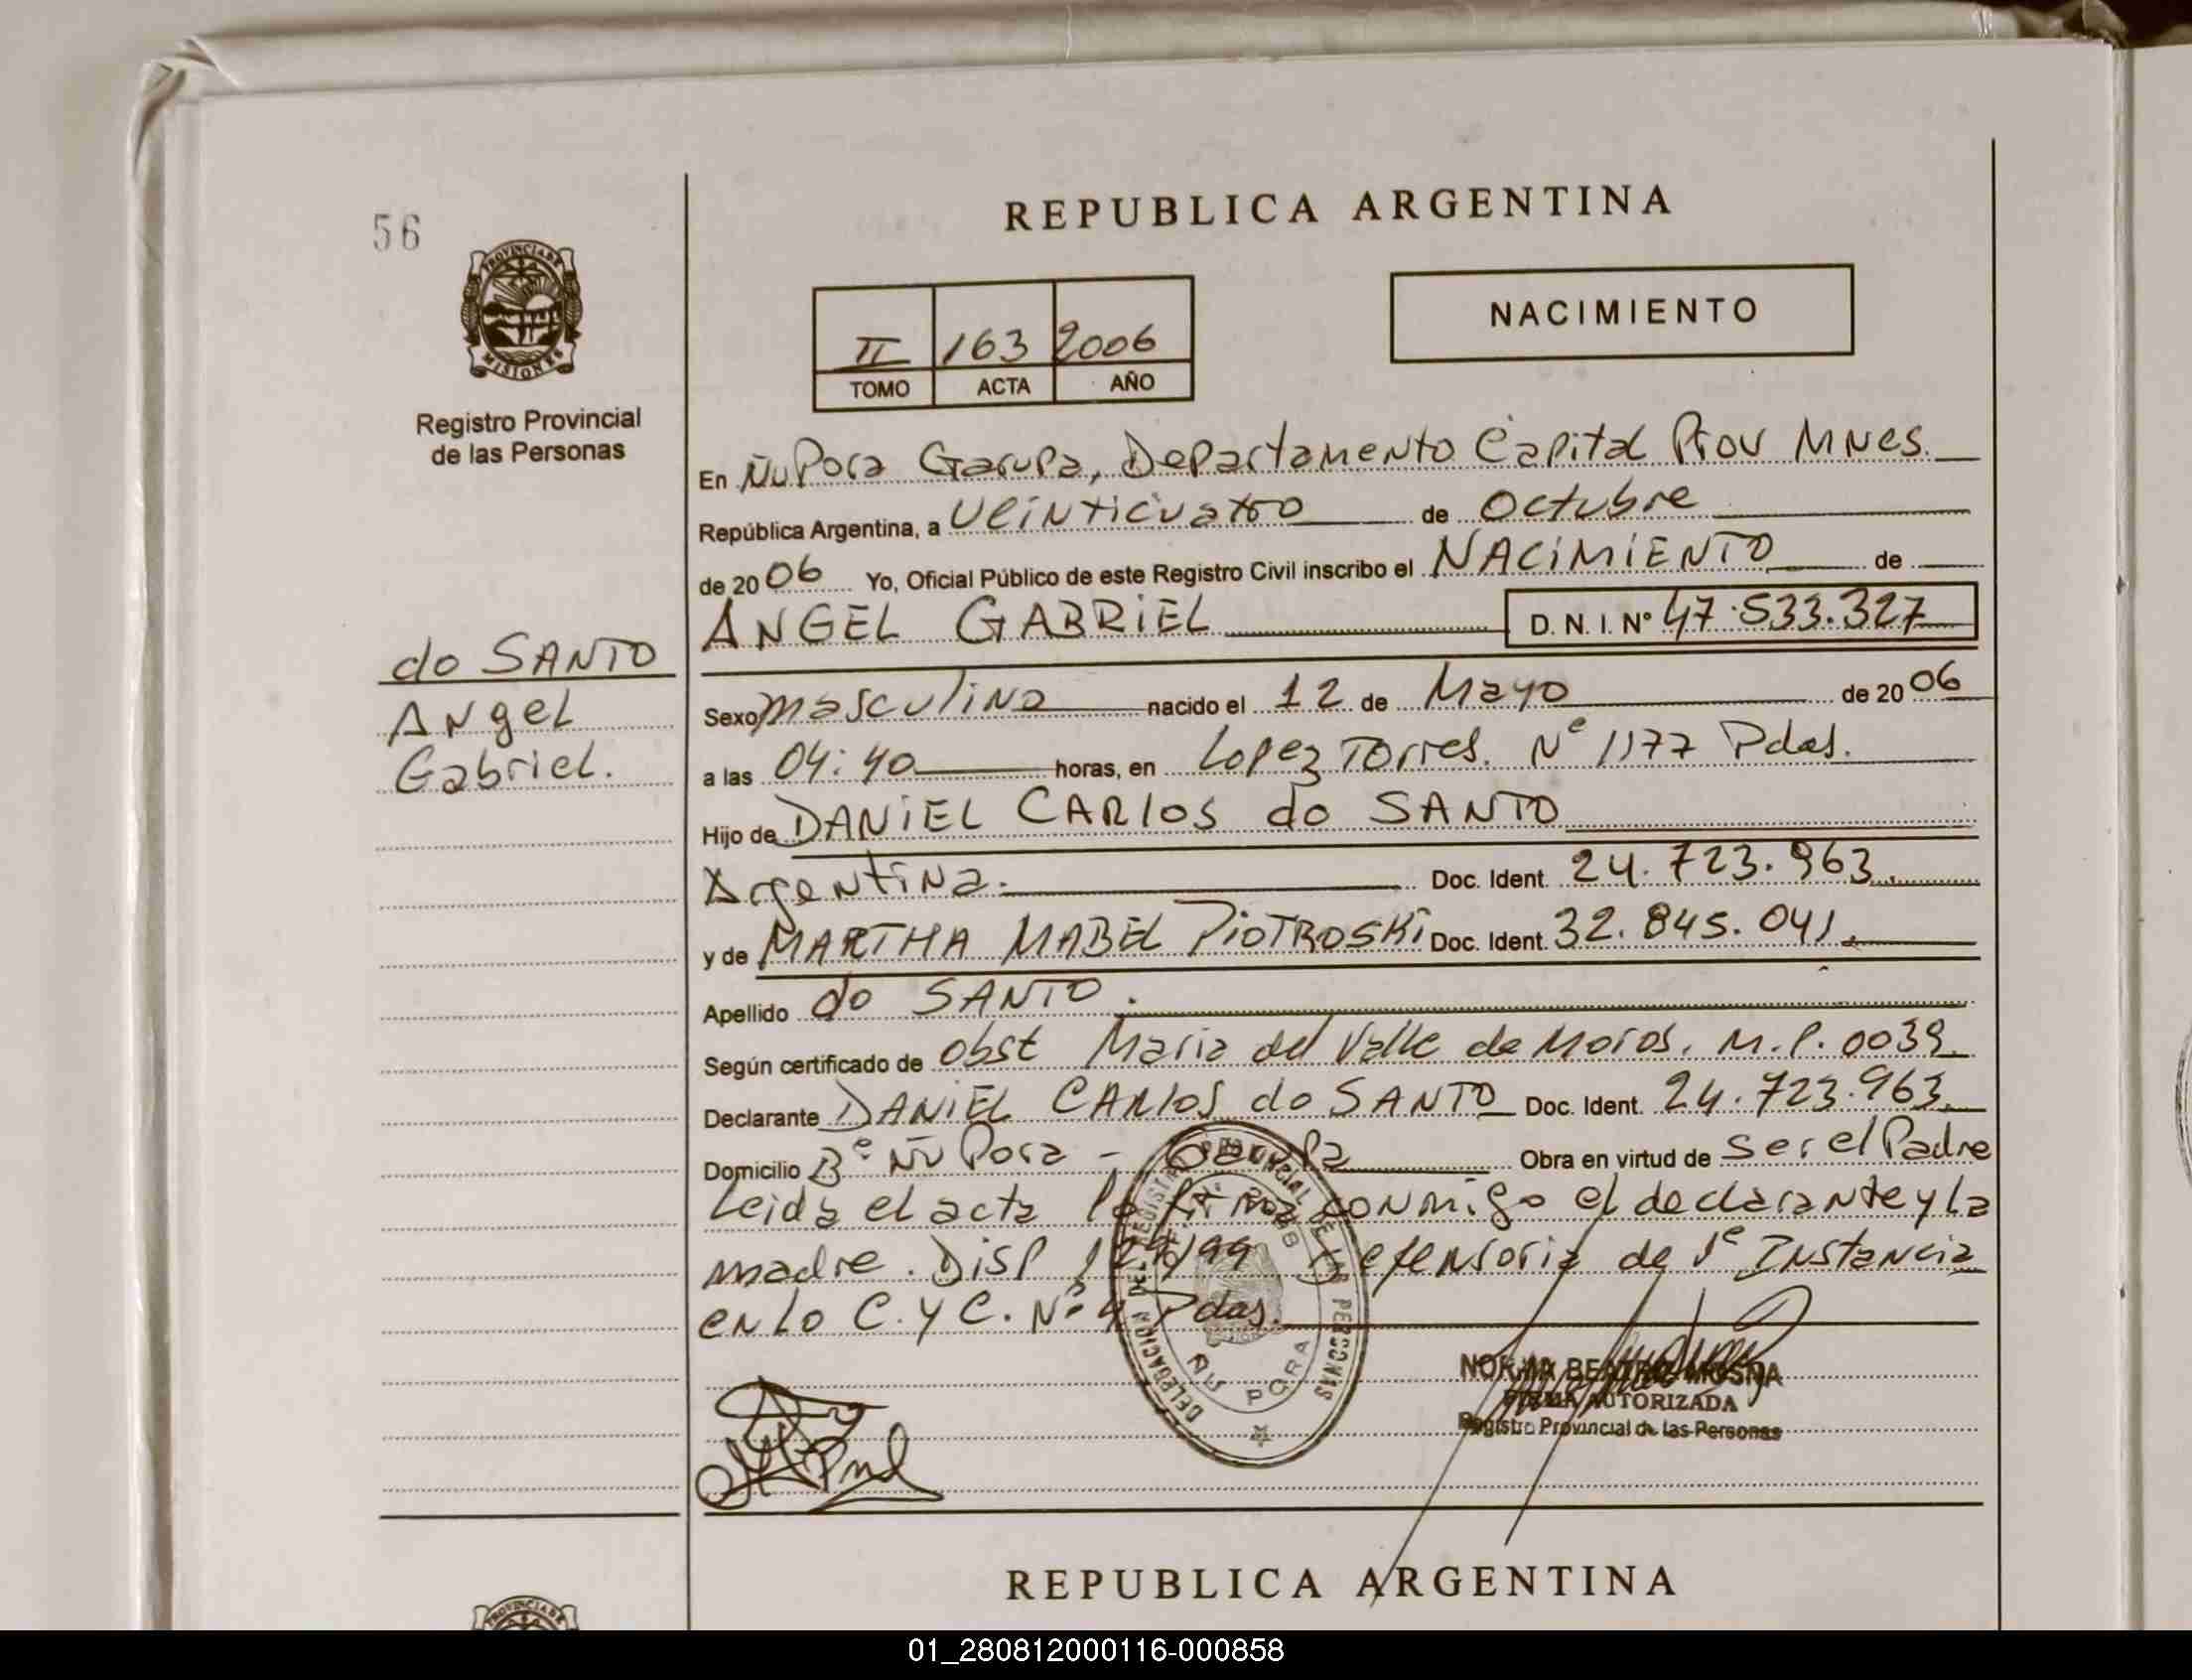 56
PROVINCIA DE
MISIONES
Registro Provincial
de las Personas
do SANTO
Angel
Gabriel.
REPUBLICA ARGENTINA
II 163 2006
TOMO ACTA AÑO
NACIMIENTO
En Ñu Pora Garupa, Departamento Capital Prov Mnes.
República Argentina, a Veinticuatro de Octubre
de 2006 Yo, Oficial Público de este Registro Civil inscribo el NACIMIENTO de
ANGEL GABRIEL D. N. I. Nº 47.533.327
Sexo masculino nacido el 12 de Mayo de 2006
a las 04:40 horas, en Lopez Torres. Nº 1177 Pdas.
Hijo de DANIEL CARLOS do SANTO
Argentina. Doc. Ident. 24.723.963.
y de MARTHA MABEL PIOTROSKI Doc. Ident. 32.845.041.
Apellido do SANTO.
Según certificado de obst Maria del Valle de Moros. M.P. 0039.
Declarante DANIEL CARLOS do SANTO Doc. Ident. 24.723.963.
Domicilio Bº Ñu Pora - Garupa Obra en virtud de ser el Padre
Leida el acta la firma conmigo el declarante y la
madre. Disp 124/99 Defensoria de 1º Instancia
en lo C. y C. Nº 4 Pdas.
DELEGACION DEL REGISTRO PROVINCIAL DE LAS PERSONAS
ÑU PORA
NORMA BEATRIZ MOSNA
FIRMA AUTORIZADA
Registro Provincial de las Personas
REPUBLICA ARGENTINA
PROVINCIA DE
01_280812000116-000858